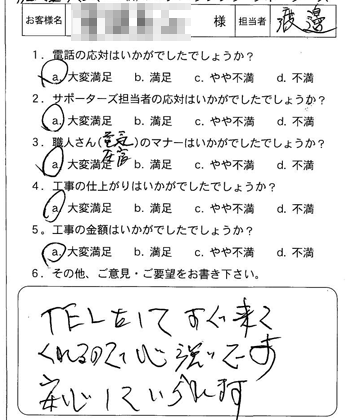 お客様名 様 担当者 渡邉
1．電話の応対はいかがでしたでしょうか？
a. 大変満足 b. 満足 c. やや不満 d. 不満
2．サポーターズ担当者の応対はいかがでしたでしょうか？
a. 大変満足 b. 満足 c. やや不満 d. 不満
3．職人さん( )のマナーはいかがでしたでしょうか？
a. 大変満足 b. 満足 c. やや不満 d. 不満
4．工事の仕上がりはいかがでしたでしょうか？
a. 大変満足 b. 満足 c. やや不満 d. 不満
5．工事の金額はいかがでしたでしょうか？
a. 大変満足 b. 満足 c. やや不満 d. 不満
6．その他、ご意見・ご要望をお書き下さい。
TEL をして すぐ 来て
くれるので 心強いです
安心していられます